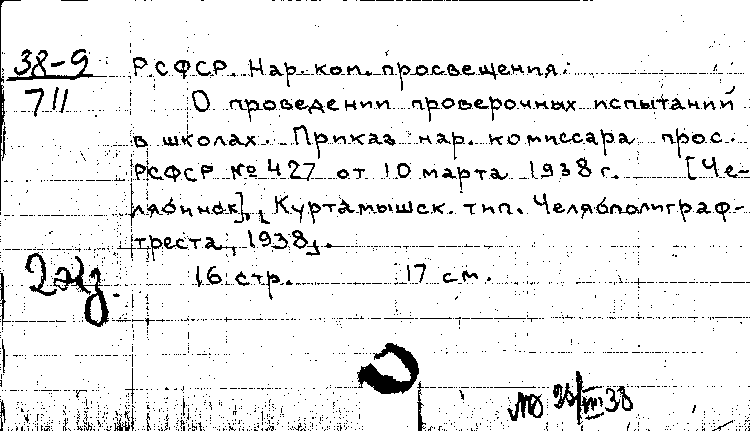 38-9
711
РСФСР. Нар. ком. просвещения.
О проведении проверочных испытаний
в школах. Приказ нар. комиссара прос.
РСФСР № 427 от 10 марта 1938 г. [Че-
лябинск], Куртамышск. тип. Челябполиграф-
треста, 1938.
16 стр. 17 см.
2 экз.
28/III 38